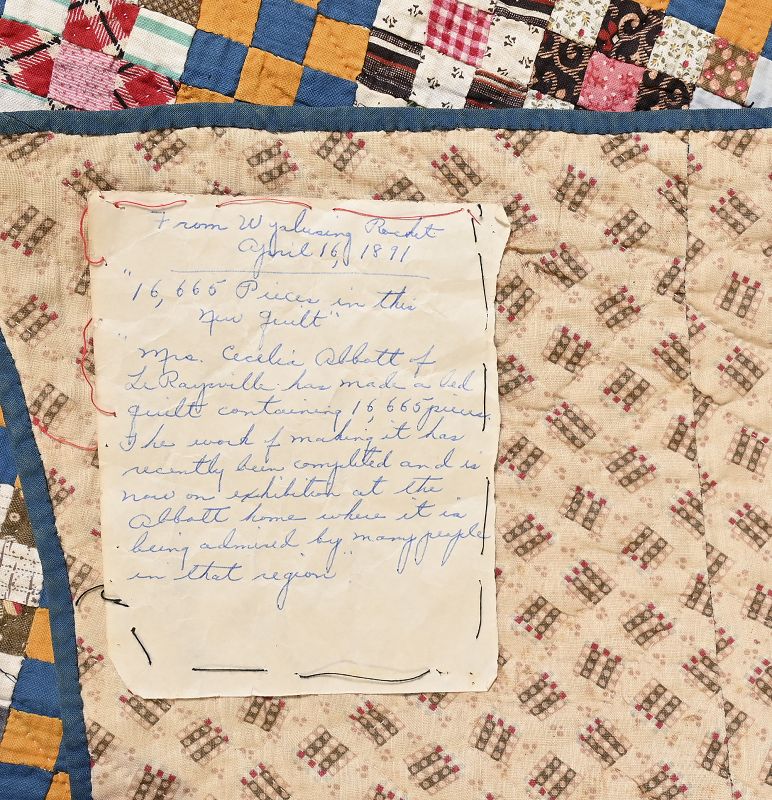 From Wyalusing Rocket
April 16, 1891
"16,665 Pieces in this
New Quilt"
"Mrs. Cecelia Abbott of
LeRaysville has made a bed
quilt containing 16,665 pieces.
The work of making it has
recently been completed and is
now on exhibition at the
Abbott home where it is
being admired by many people
in that region"